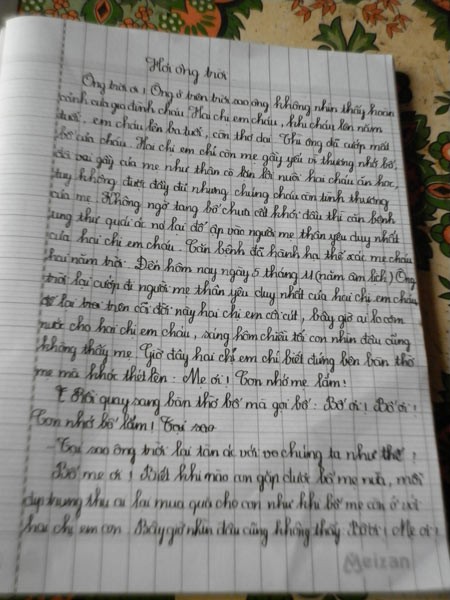 Hỡi ông trời
Ông trời ơi! Ông ở trên trời sao ông không nhìn thấy hoàn
cảnh của gia đình cháu. Hai chị em cháu, khi cháu lên năm
tuổi, em cháu lên ba tuổi, còn thơ dại. Thì ông đã cướp mất
bố của cháu. Hai chị em chỉ còn mẹ gầy yếu vì thương nhớ bố,
đôi vai gầy của mẹ như thân cò lặn lội nuôi hai cháu ăn học,
tuy không được đầy đủ nhưng chúng cháu còn tình thương
của mẹ. Không ngờ tang bố chưa cất khỏi đầu thì căn bệnh
ung thư quái ác nó lại đổ ập vào người mẹ thân yêu duy nhất
của hai chị em cháu. Căn bệnh đã hành hạ thể xác mẹ cháu
hai năm trời. Đến hôm nay ngày 5 tháng 11 (năm âm lịch) Ông
trời lại cướp đi người mẹ thân yêu duy nhất của hai chị em cháu
để lại trơ trên cõi đời này hai chị em côi cút, bây giờ ai lo cơm
nước cho hai chị em cháu, sáng hôm chiều tối con nhìn đâu cũng
không thấy mẹ. Giờ đây hai chị em chỉ biết đứng bên bàn thờ
mẹ mà khóc thét lên: Mẹ ơi! Con nhớ mẹ lắm!
Rồi quay sang bàn thờ bố mà gọi bố: Bố ơi! Bố ơi!
Con nhớ bố lắm! Tại sao
- Tại sao ông trời lại tàn ác với chúng ta như thế?
Bố mẹ ơi! Biết khi nào con gặp được bố mẹ nữa, mỗi
dịp trung thu ai lại mua quà cho con như khi bố mẹ còn ở với
hai chị em con. Bây giờ nhìn đâu cũng không thấy. Bố ơi! Mẹ ơi!
Meizan